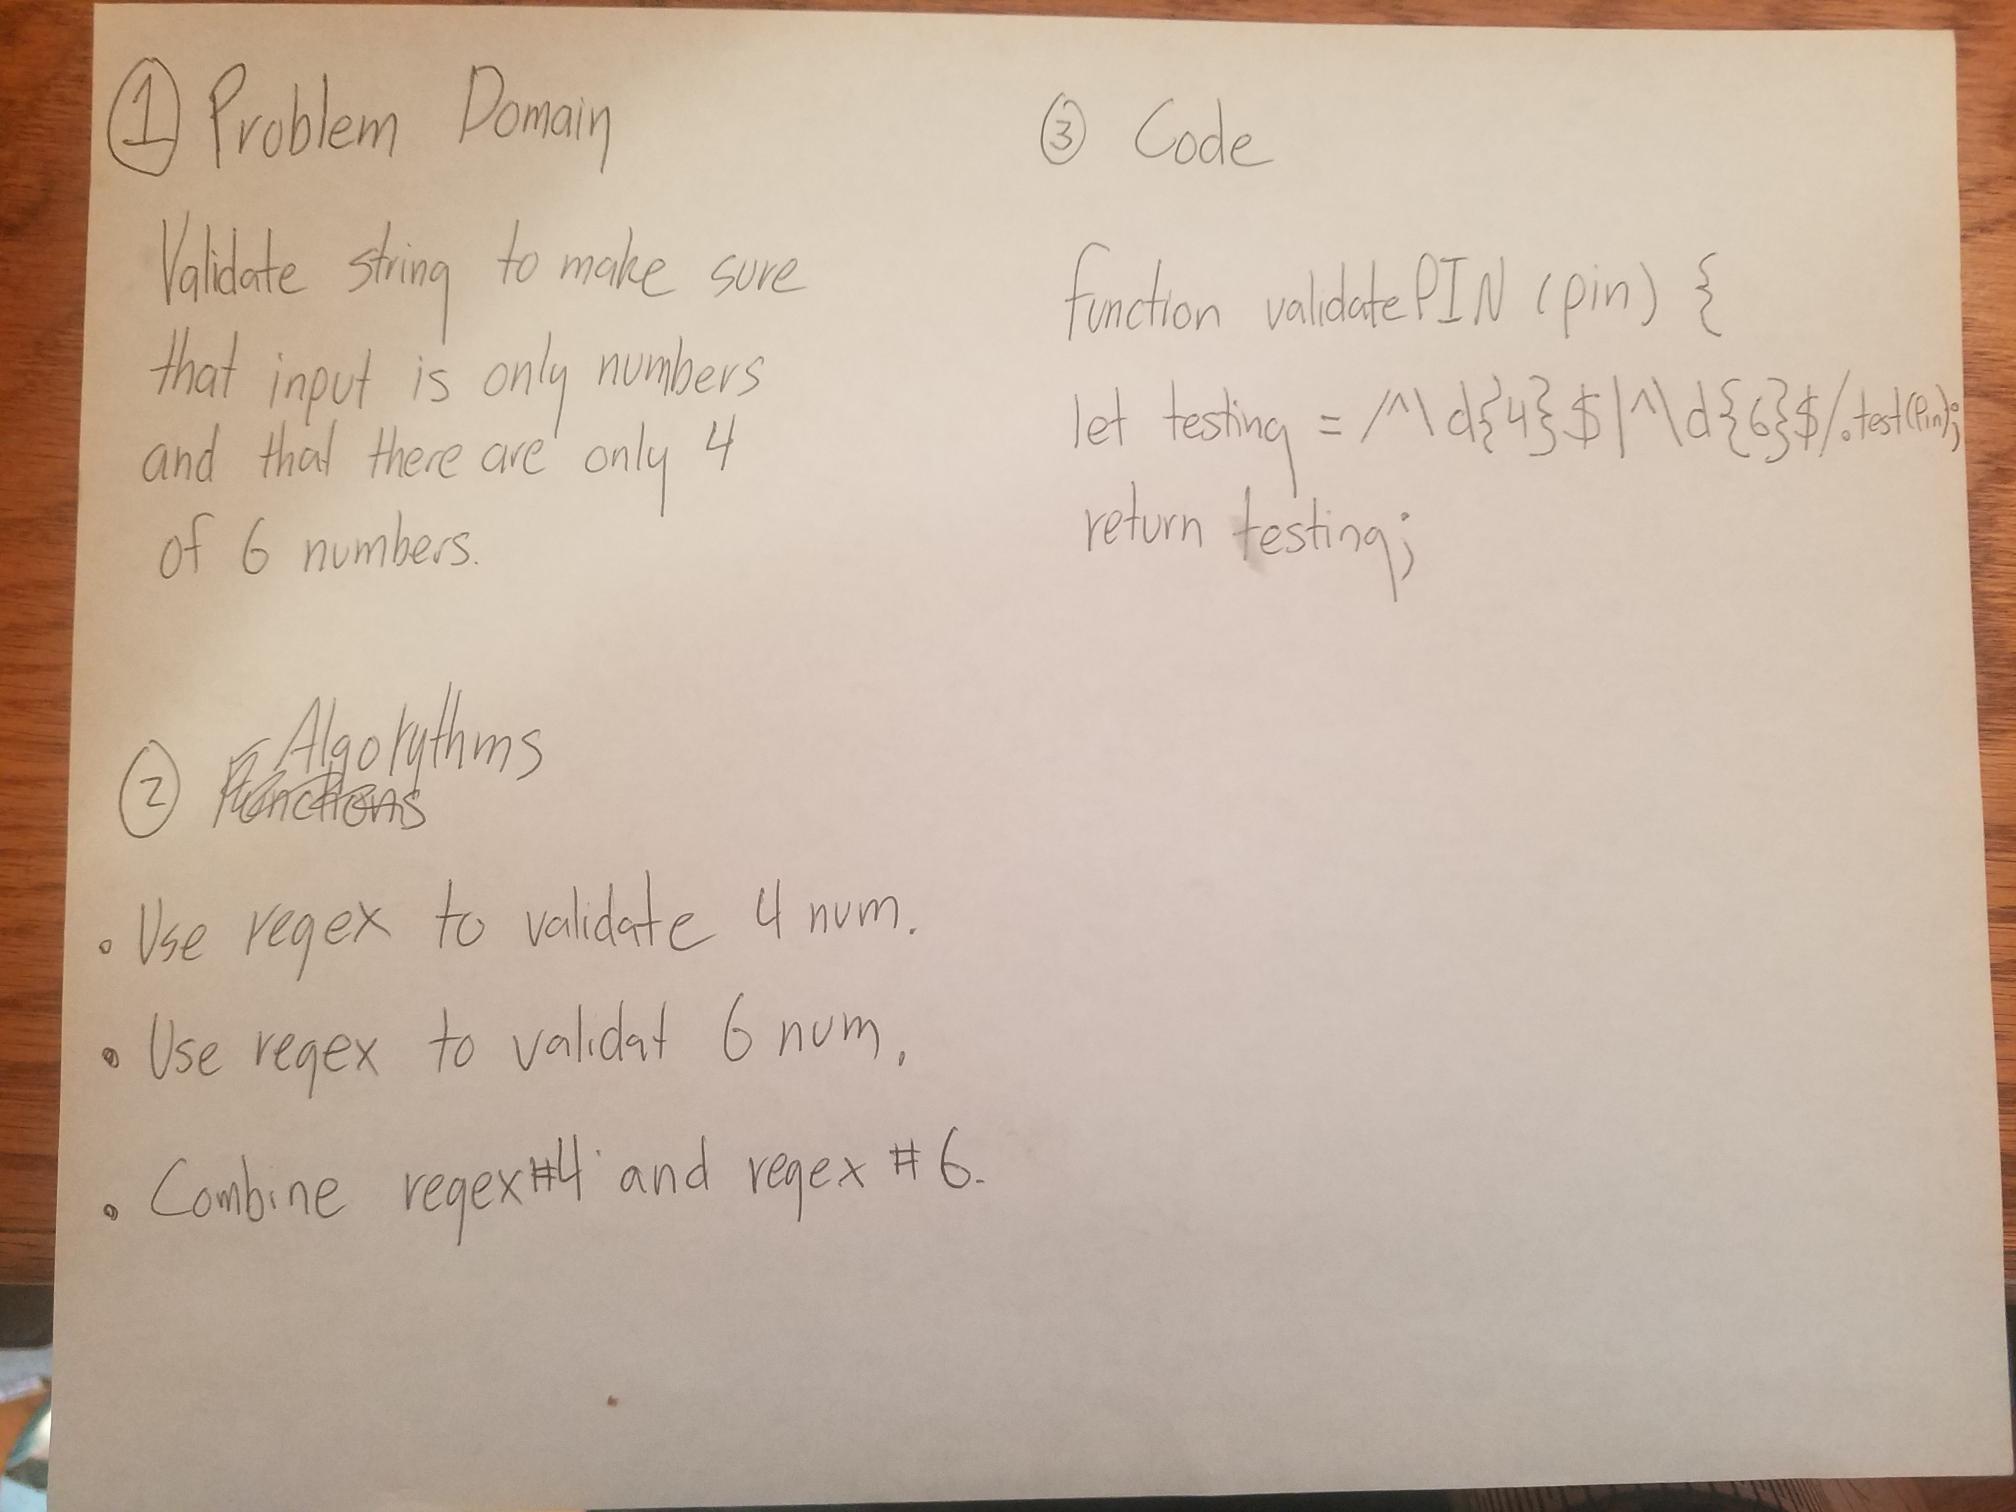 ① Problem Domain
Validate string to make sure
that input is only numbers
and that there are only 4
of 6 numbers.
② Algorythms
Functions
• Use regex to validate 4 num.
• Use regex to validat 6 num.
• Combine regex #4 and regex #6.
③ Code
function validatePIN (pin) {
let testing = /^\d{4}$|^\d{6}$/.test(pin);
return testing;